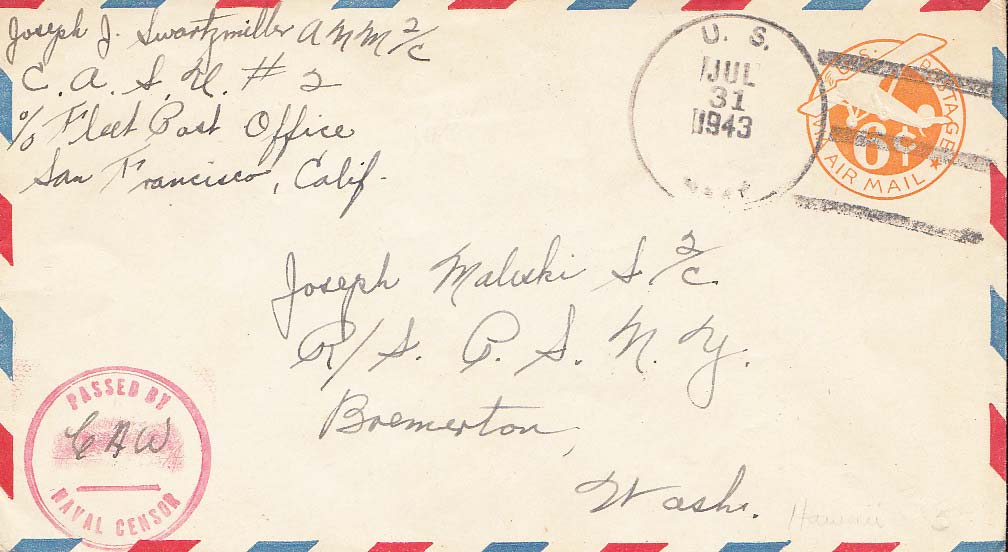 Joseph J. Swartzmiller AMM 2/c
C. A. S. U. # 2
c/o Fleet Post Office
San Francisco, Calif.
U. S.
JUL
31
1943
NAVY
U.S. POSTAGE
6¢
VIA AIR MAIL
Joseph Maluski S 2/c.
R/S. P. S. N. Y.
Bremerton,
Wash.
PASSED BY
CAW
NAVAL CENSOR
Hawaii 5